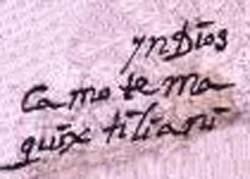 yndios
Camotema
quixtiliani